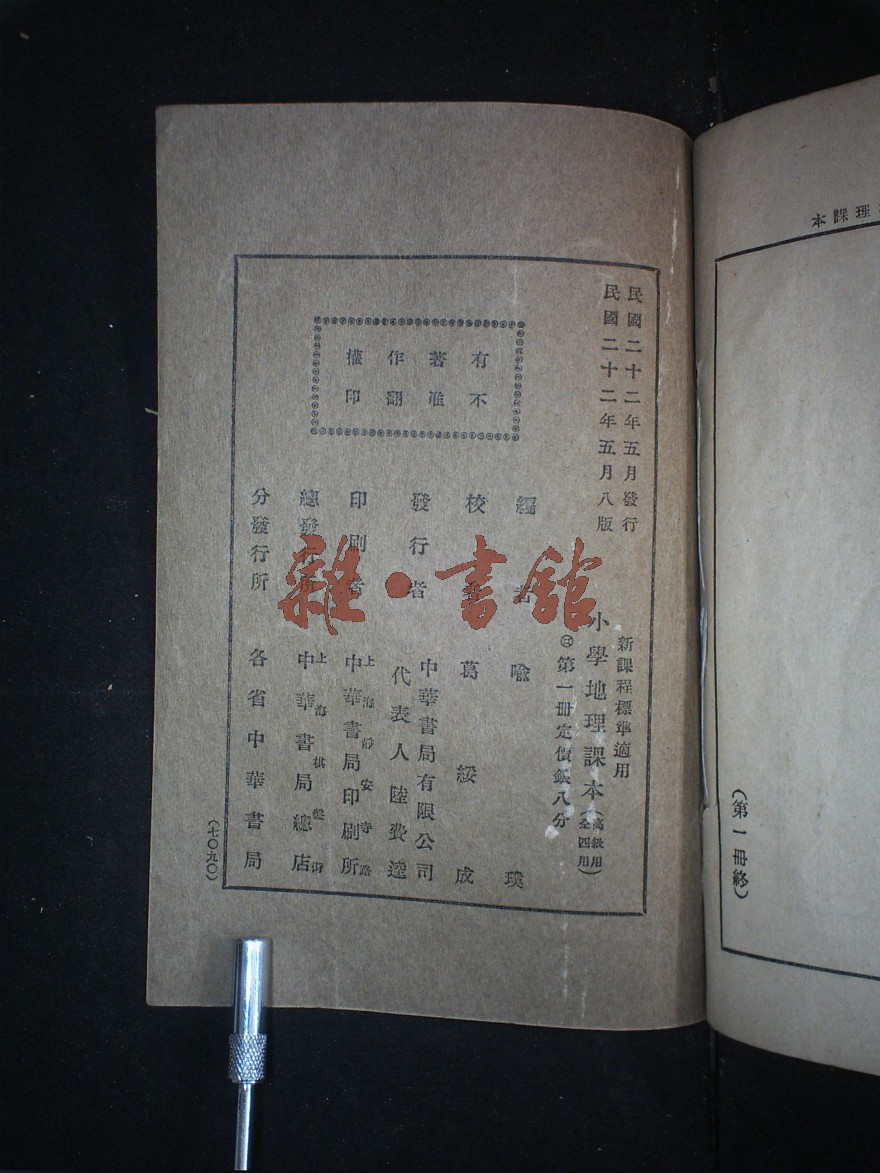 民國二十二年五月發行
民國二十二年五月八版
新課程標準適用
小學地理課本(高級用全四冊)
第一冊定價銀八分
有著作權
不准翻印
編者 喩璞
校者 葛綏成
發行者 中華書局有限公司
代表人陸費逵
印刷者 上海靜安寺路
中華書局印刷所
總發行所 上海棋盤街
中華書局總店
分發行所 各省中華書局
(七〇九〇)
理課本
(第一冊終)
雜·書館